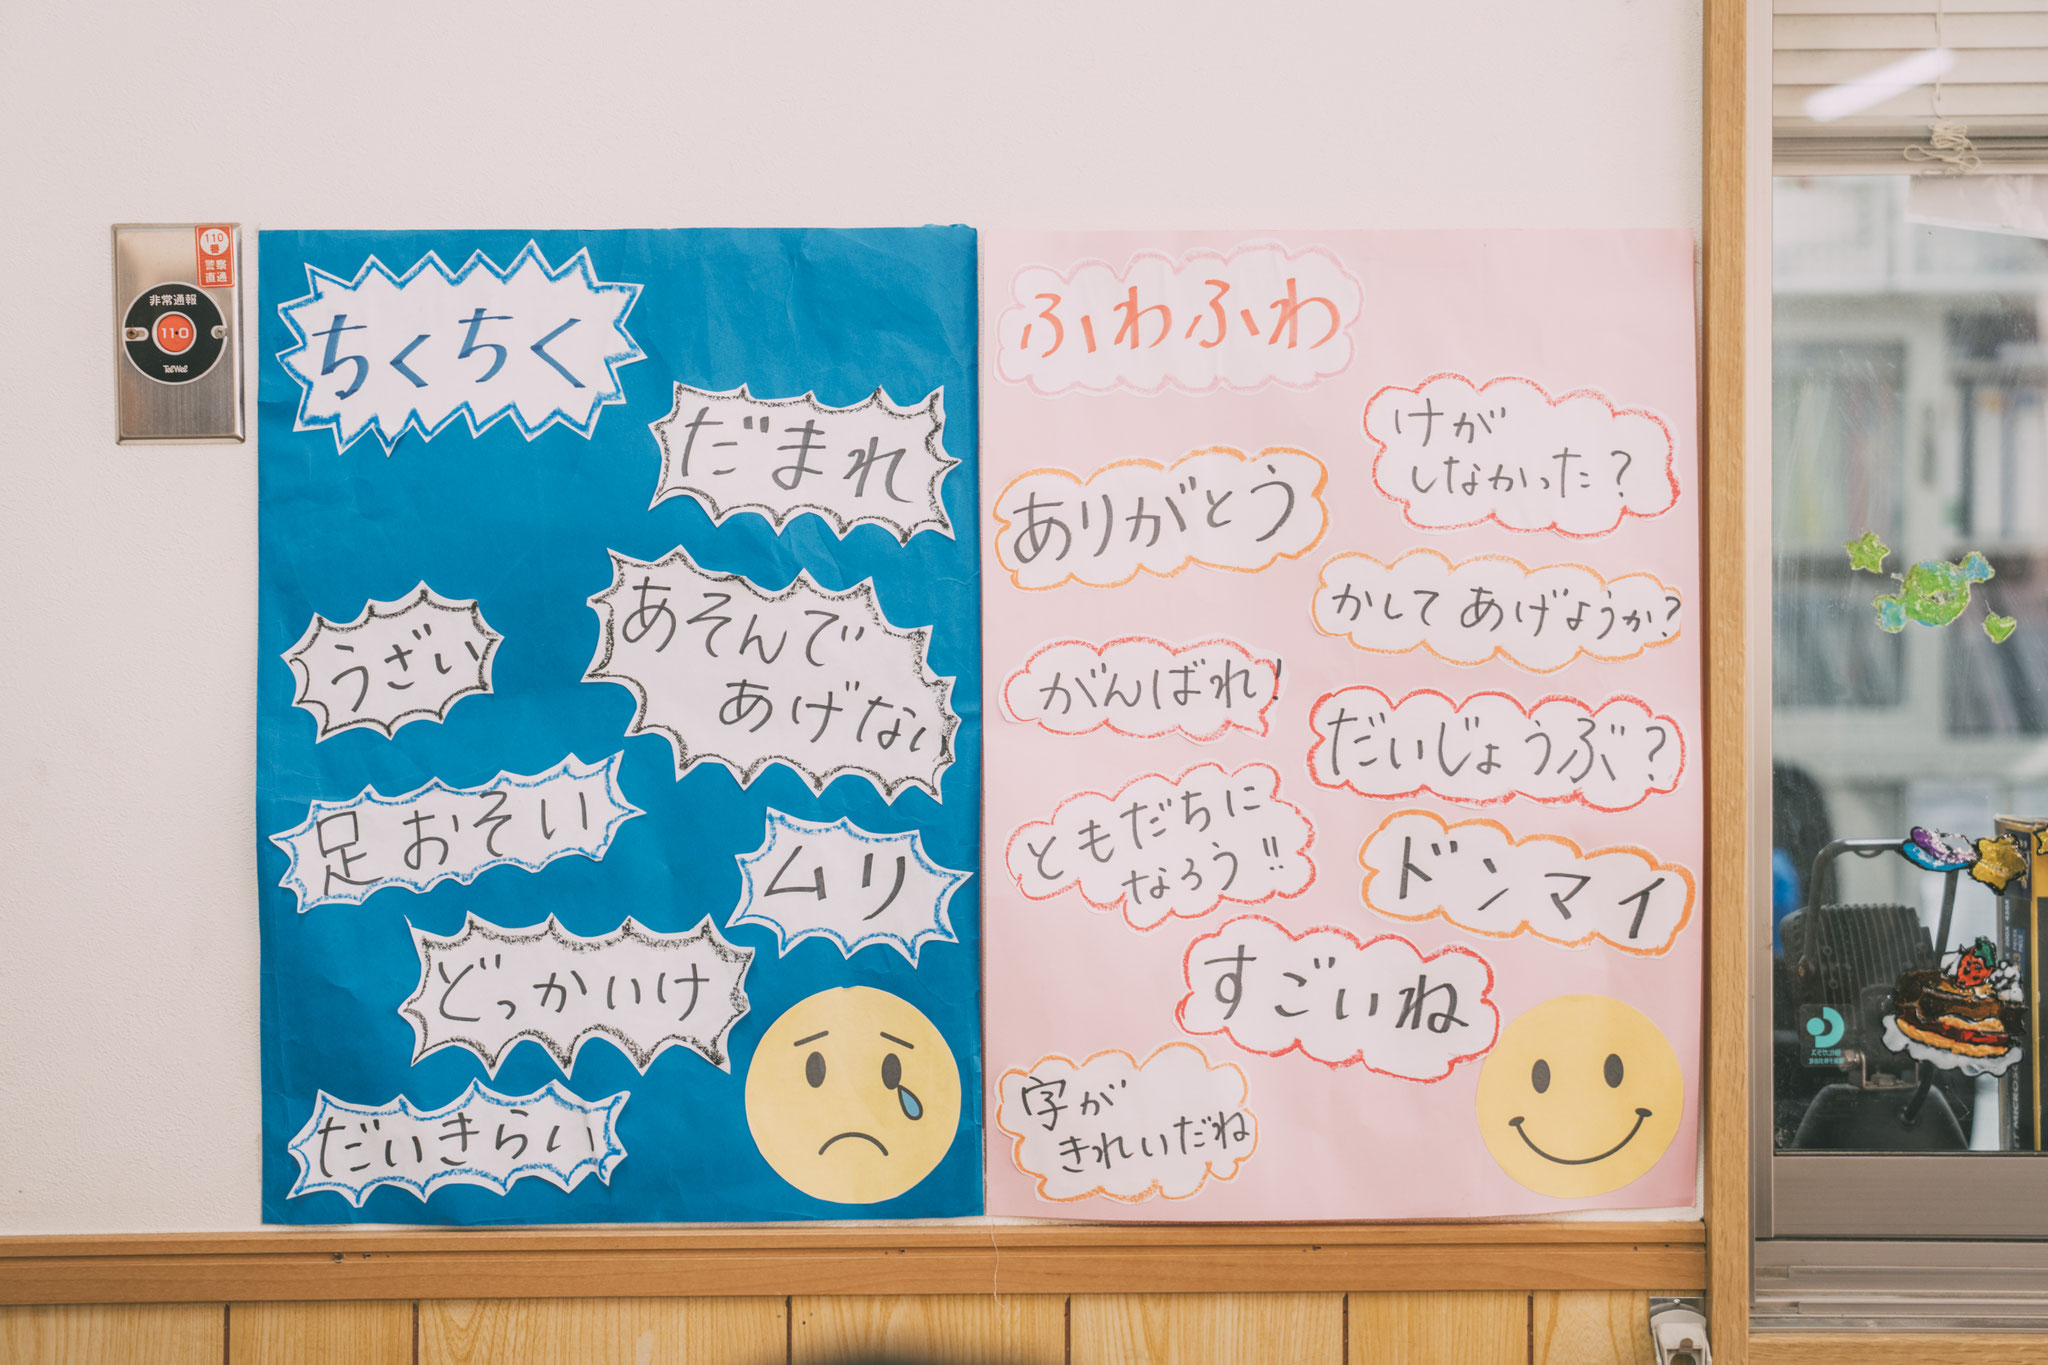 110
番
警察
直通
非常通報
110
TelWel
ちくちく
だまれ
うざい
あそんで
あげない
足おそい
ムリ
どっかいけ
だいきらい
ふわふわ
けが
しなかった?
ありがとう
かしてあげようか?
がんばれ!
だいじょうぶ?
ともだちに
なろう!!
ドンマイ
すごいね
字が
きれいだね